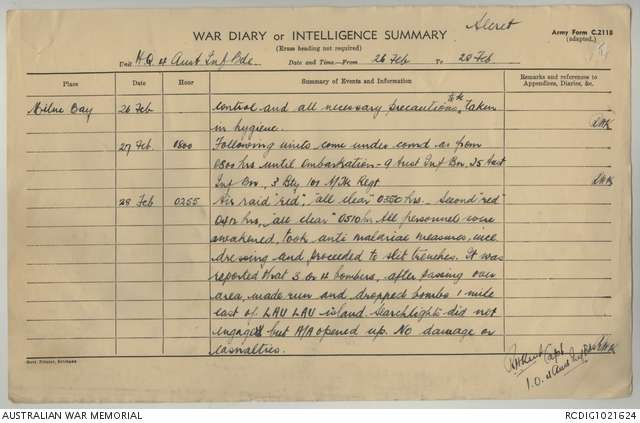 Secret
WAR DIARY or INTELLIGENCE SUMMARY
Army Form C.2118
(adapted.)
(Erase heading not required)
Unit H.Q 4 Aust Inf Bde. Date and Time—From 26 Feb To 28 Feb
Place Date Hour Summary of Events and Information Remarks and references to Appendices, Diaries, &c.
Milne Bay 26 Feb control and all necessary precautions to be taken
in hygiene.
27 Feb 0800 Following units come under comd as from
0800 hrs until Embarkation - 9 Aust Inf Bn, 25 Aust
Inf Bn, 3 Bty 101 A/Tk Regt
28 Feb 0255 Air raid "red", "all clear" 0350 hrs. Second "red"
0412 hrs, "all clear" 0510 hr. All personnel were
awakened, took anti malarial measures, incl
dressing and proceeded to slit trenches. It was
reported that 3 or 4 bombers, after passing over
area, made run and dropped bombs 1 mile
east of LAU LAU island. Searchlights did not
engage but A/A opened up. No damage or
casualties.
Capt
I.O. 4 Aust Inf Bde
Govt. Printer, Brisbane.
AUSTRALIAN WAR MEMORIAL RCDIG1021624